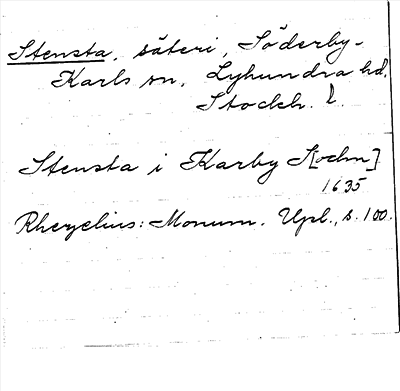 Stensta, säteri, Söderby-
Karls sn, Lyhundra hd.
Stockh. l.
Stensta i Karby S[ochn]
1635
Rhezelius: Monum. Upl., s. 100.